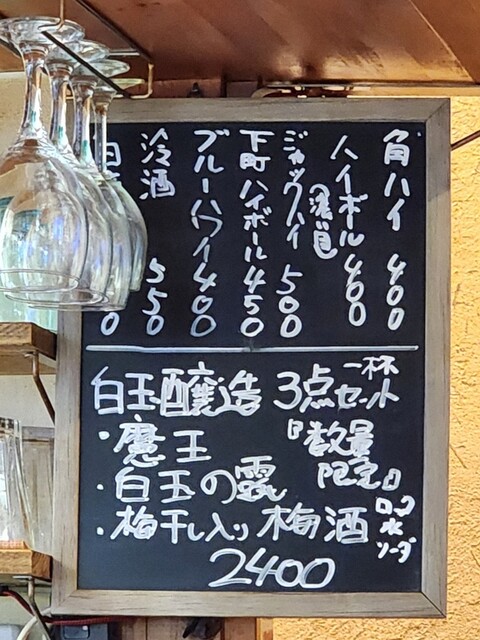 角ハイ 400
ハイボル 400
(濃いめ)
ジャックハイ 500
下町ハイボール 450
ブルーハワイ 400
冷酒 550
白玉醸造 3点 一杯セット
・魔王
『数量限定』
・白玉の露
・梅干し入り梅酒
ロック
水
ソーダ
2400